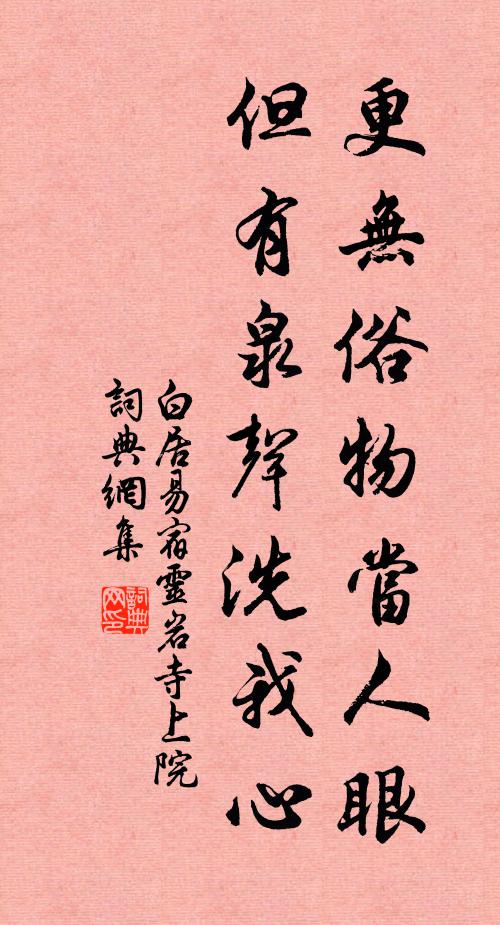 更無俗物當人眼
但有泉聲洗我心
白居易宿靈岩寺上院
詞典網集
詞典网印